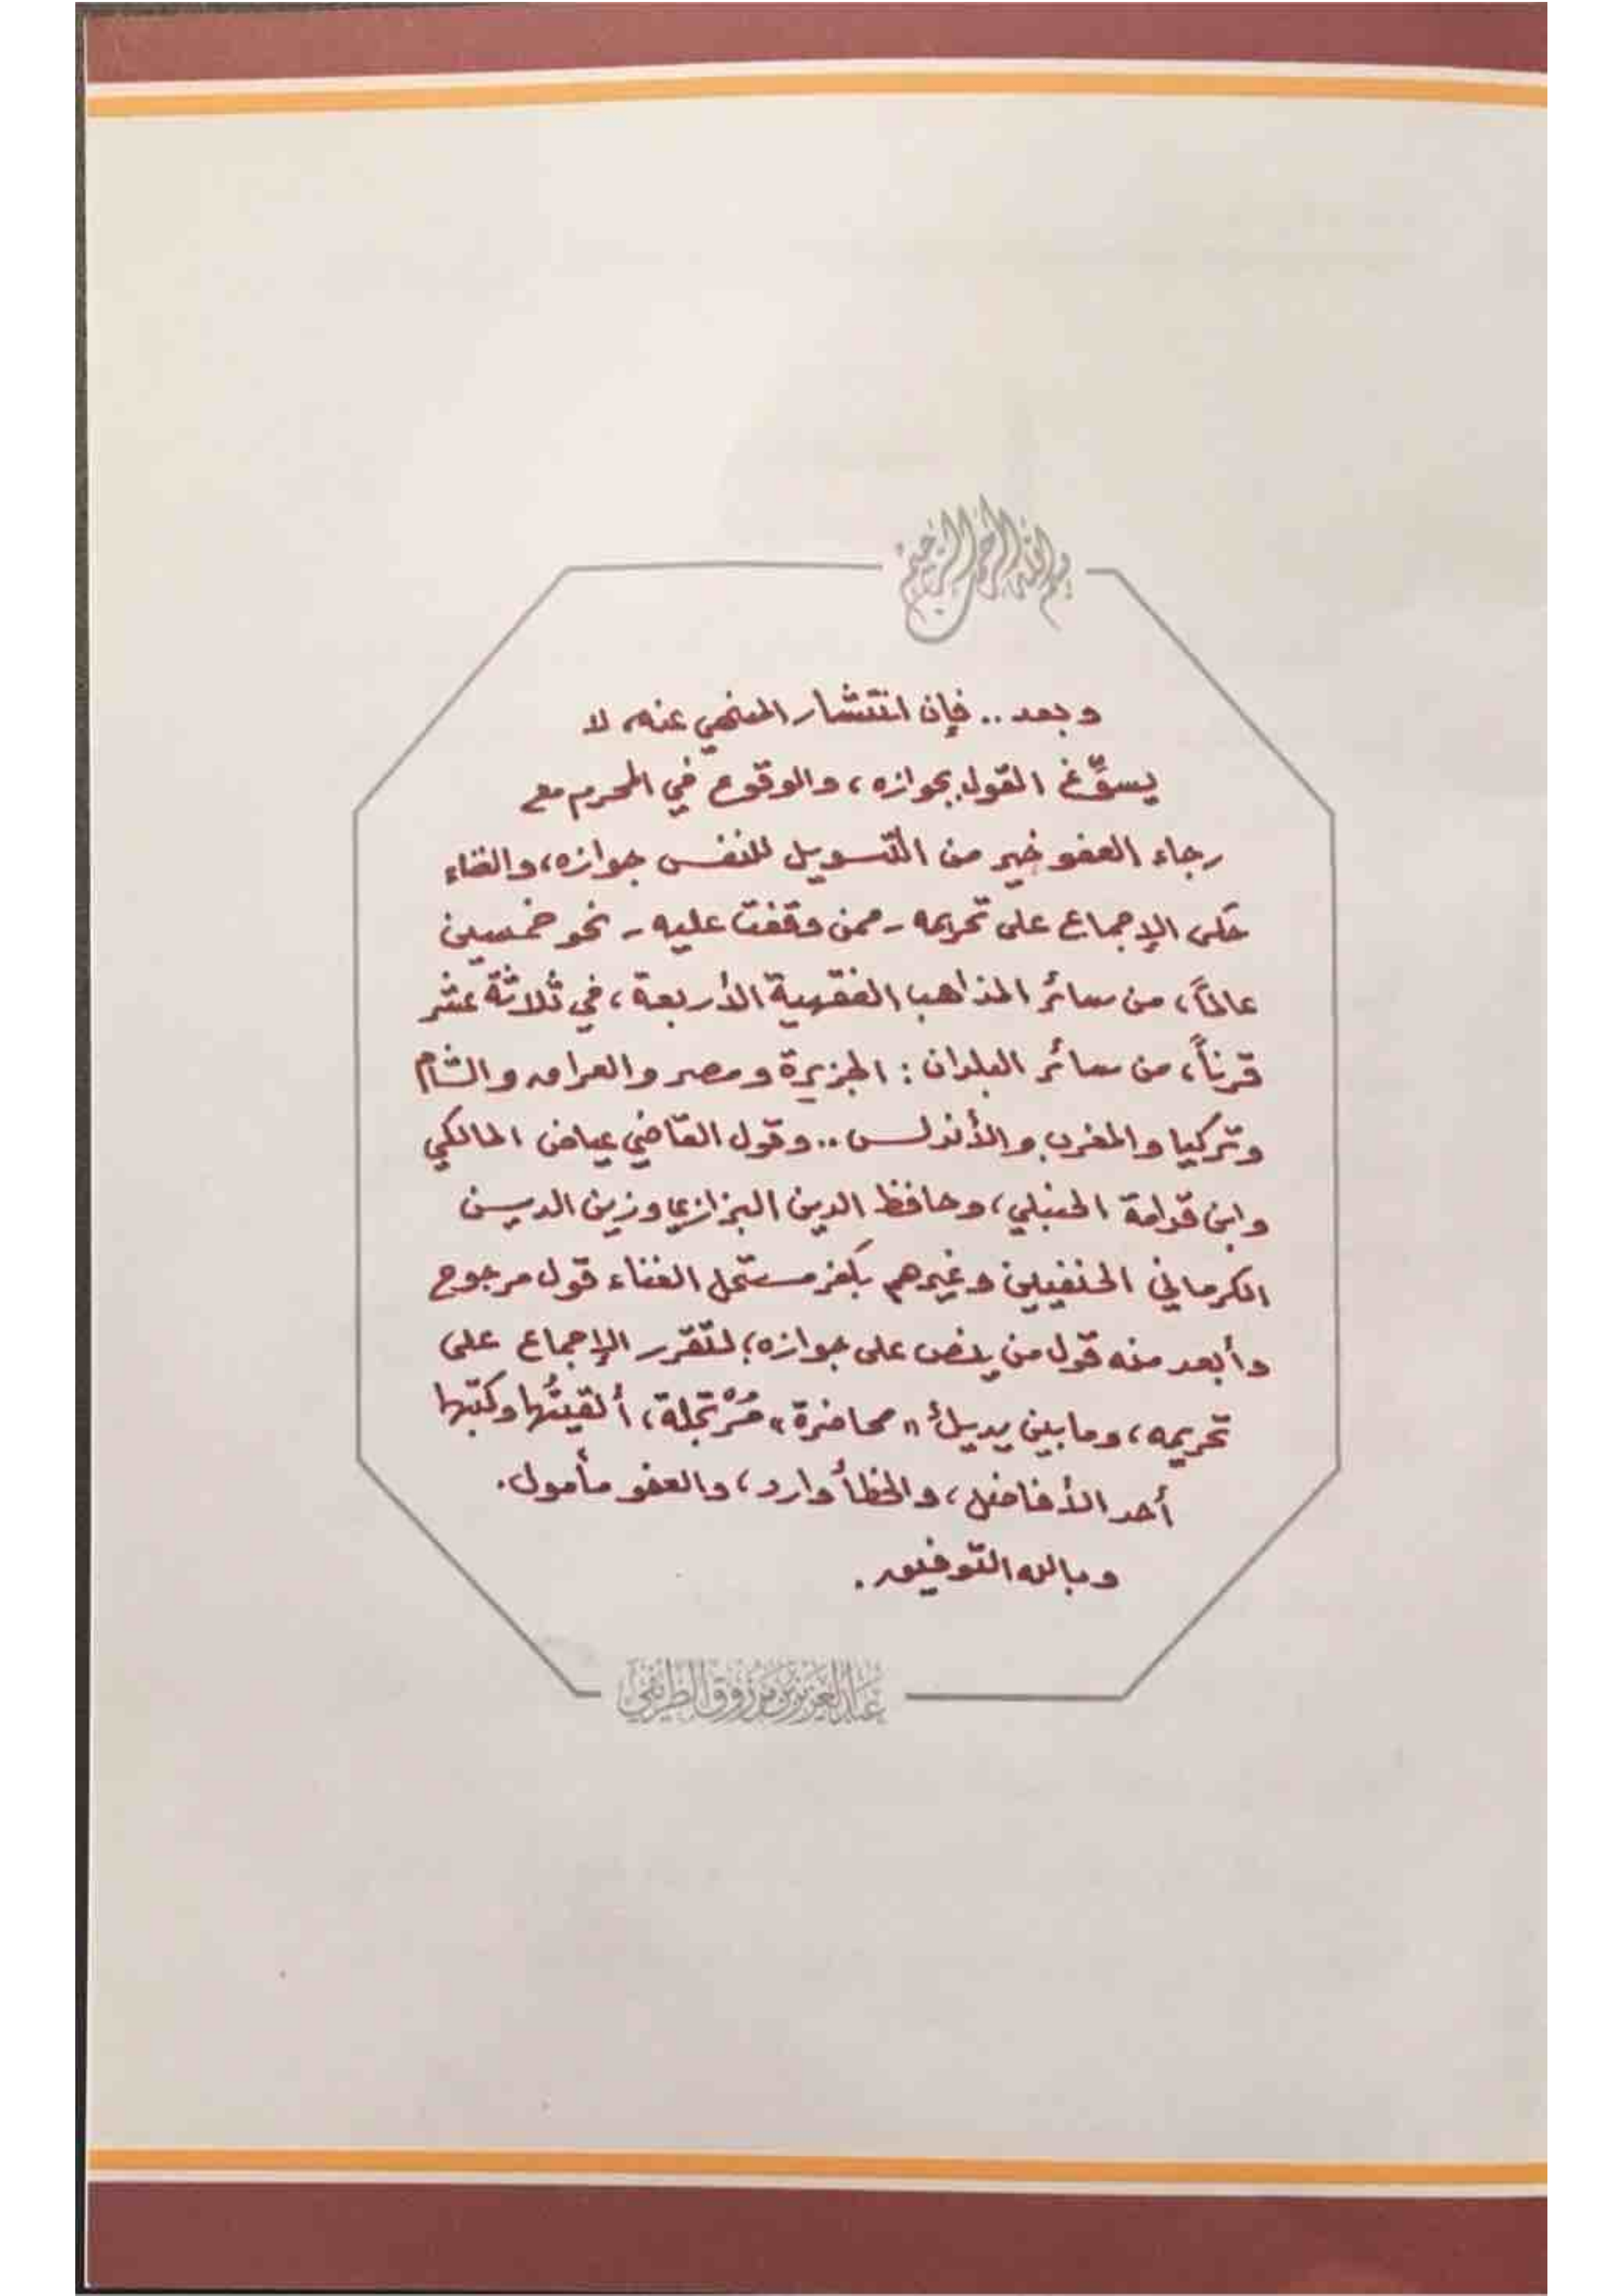 بسم الله الرحمن الرحيم
وبعد .. فإن انتشار المنهي عنه، لا
يسوِّغ القول بجوازه، والوقوع في المحرم مع
رجاء العفو خير من التّسويل للنفس جوازه، والغناء
حكى الإجماع على تحريمه - ممن وقفت عليه - نحو خمسين
عالماً، من سائر المذاهب الفقهية الأربعة، في ثلاثة عشر
قرناً، من سائر البلدان : الجزيرة ومصر والعراق والشام
وتركيا والمغرب والأندلس .. وقول القاضي عياض المالكي
وابن قدامة الحنبلي، وحافظ الدين البزازي وزين الدين
الكرماني الحنفيين وغيرهم بكفر مستحل الغناء قول مرجوح
وأبعد منه قول من ينص على جوازه؛ لتقرر الإجماع على
تحريمه، وما بين يديك "محاضرة" مُرْتجلة، ألقيتُها وكتبها
أحد الأفاضل، والخطأ وارد، والعفو مأمول.
وبالله التّوفيق .
عبد العزيز بن مرزوق الطريفي